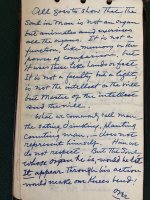 All goes to show that the
Soul in Man is not an organ
but animates and exercises
all the organs. It is not a
function, like memory or the
power of comparison, but
uses these like hands or feet.
It is not a faculty, but a light;
is not the intellect or the will
but Master of the intellect
and the will.
What we commonly call man
the eating, drinking, planting
counting man, does not
represent himself. Him we
do not respect. But the Soul
whose organ he is, would he let
it appear through his action
would make our knees bend!